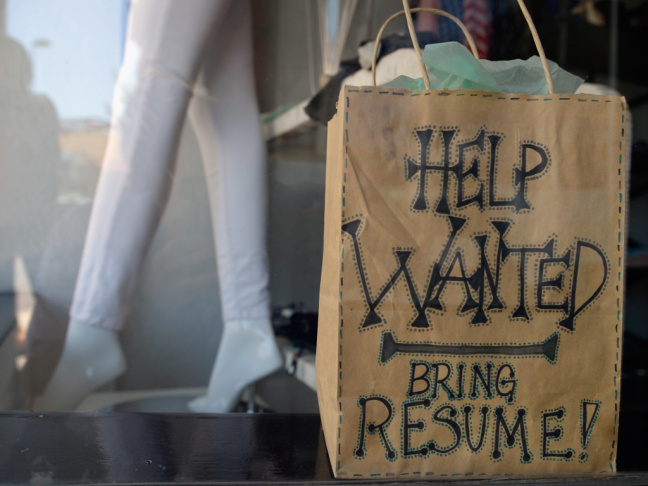 HELP
WANTED
BRING
RESUME!